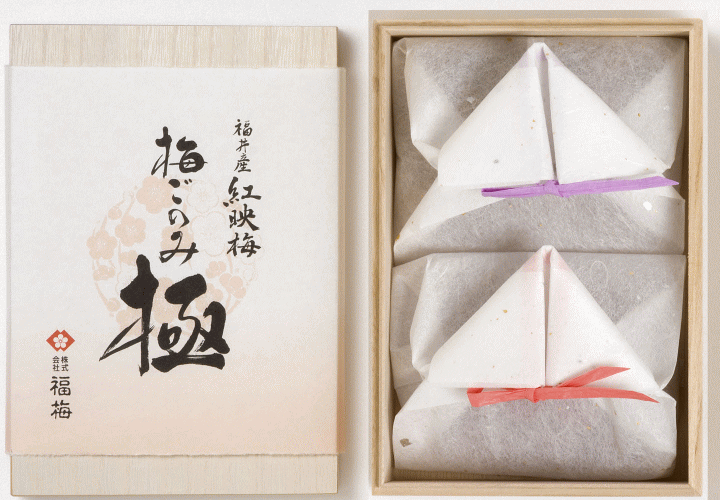 福井産 紅映梅
梅ごのみ
極
株式
会社
福梅